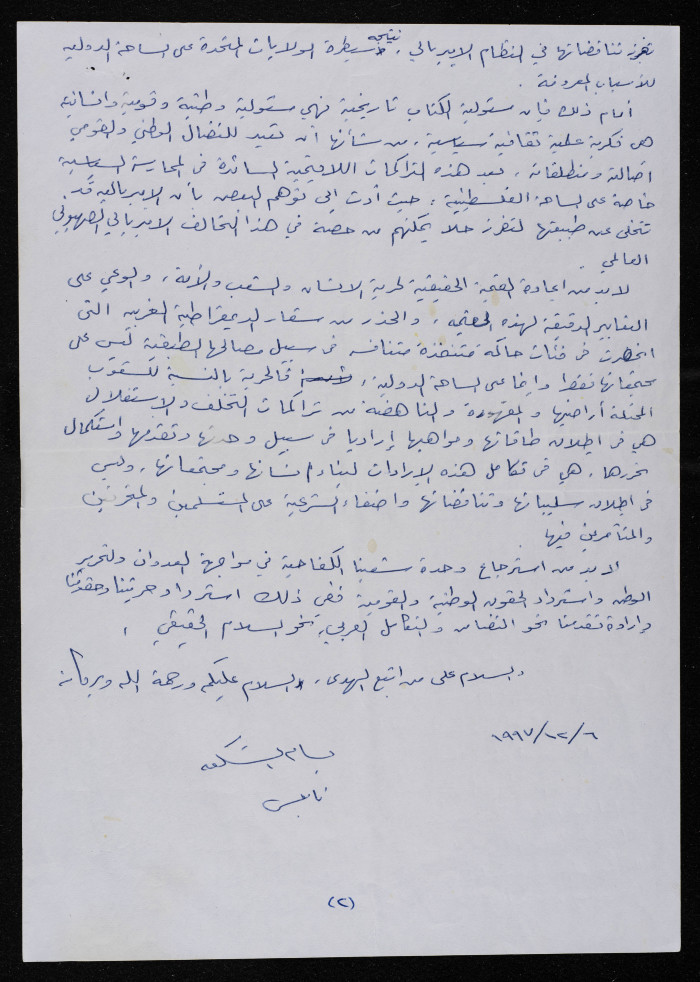 تفرز تناقضاتها في النظام الامبريالي، نتيجة سيطرة الولايات المتحدة على الساحة الدولية
للأسباب المعروفة.
أمام ذلك فإن مسئولية الكتاب تاريخية فهي مسئولية وطنية وقومية وانسانية
هي فكرية علمية ثقافية سياسية، من شأنها أن تعيد للنضال الوطني والقومي
اصالته ومنطلقاته، بعد هذه التراكمات اللاقيمية السائدة في الممارسة السياسية
خاصة على الساحة الفلسطينية، حيث أدت الى توهم البعض بأن الامبريالية قد
تتخلى عن طبيعتها لتفرز حلا يمكنهم من حصة في هذا التحالف الامبريالي الصهيوني
العالمي.
لابد من اعادة القيمة الحقيقية لحرية الانسان والشعب والأمة، والوعي على
المعايير الدقيقة لهذه، والحذر من ستار الديمقراطية الغربية التي
انحصرت في فئات حاكمة متنفذة متنافسة في سبيل مصالحها الطبقية ليس على
مجتمعاتها فقط وإنما على الساحة الدولية، فالحرية بالنسبة للشعوب
المحتلة أراضيها والمقهورة والناهضة من تراكمات التخلف والاستغلال
هي في اطلاق طاقاتها ومواهبها إراديا في سبيل وحدتها وتقدمها واستكمال
تحررها، هي في تكامل هذه الارادات لبناء انسانها ومجتمعاتها، وليس
في اطلاق سلبياتها وتناقضاتها واضفاء الشرعية على المستسلمين والمفرطين
والمتآمرين فيها.
لابد من استرجاع وحدة شعبنا الكفاحية في مواجهة العدوان ولتحرير
الوطن واسترداد الحقوق الوطنية والقومية ففي ذلك استرداد حريتنا وحقوقنا
وارادة تقدمنا نحو التضامن والتكامل العربي، نحو السلام الحقيقي،
والسلام على من اتبع الهدى، والسلام عليكم ورحمة الله وبركاته
٦/١٢/١٩٩٧
بسام الشكعه
نابلس
(٢)